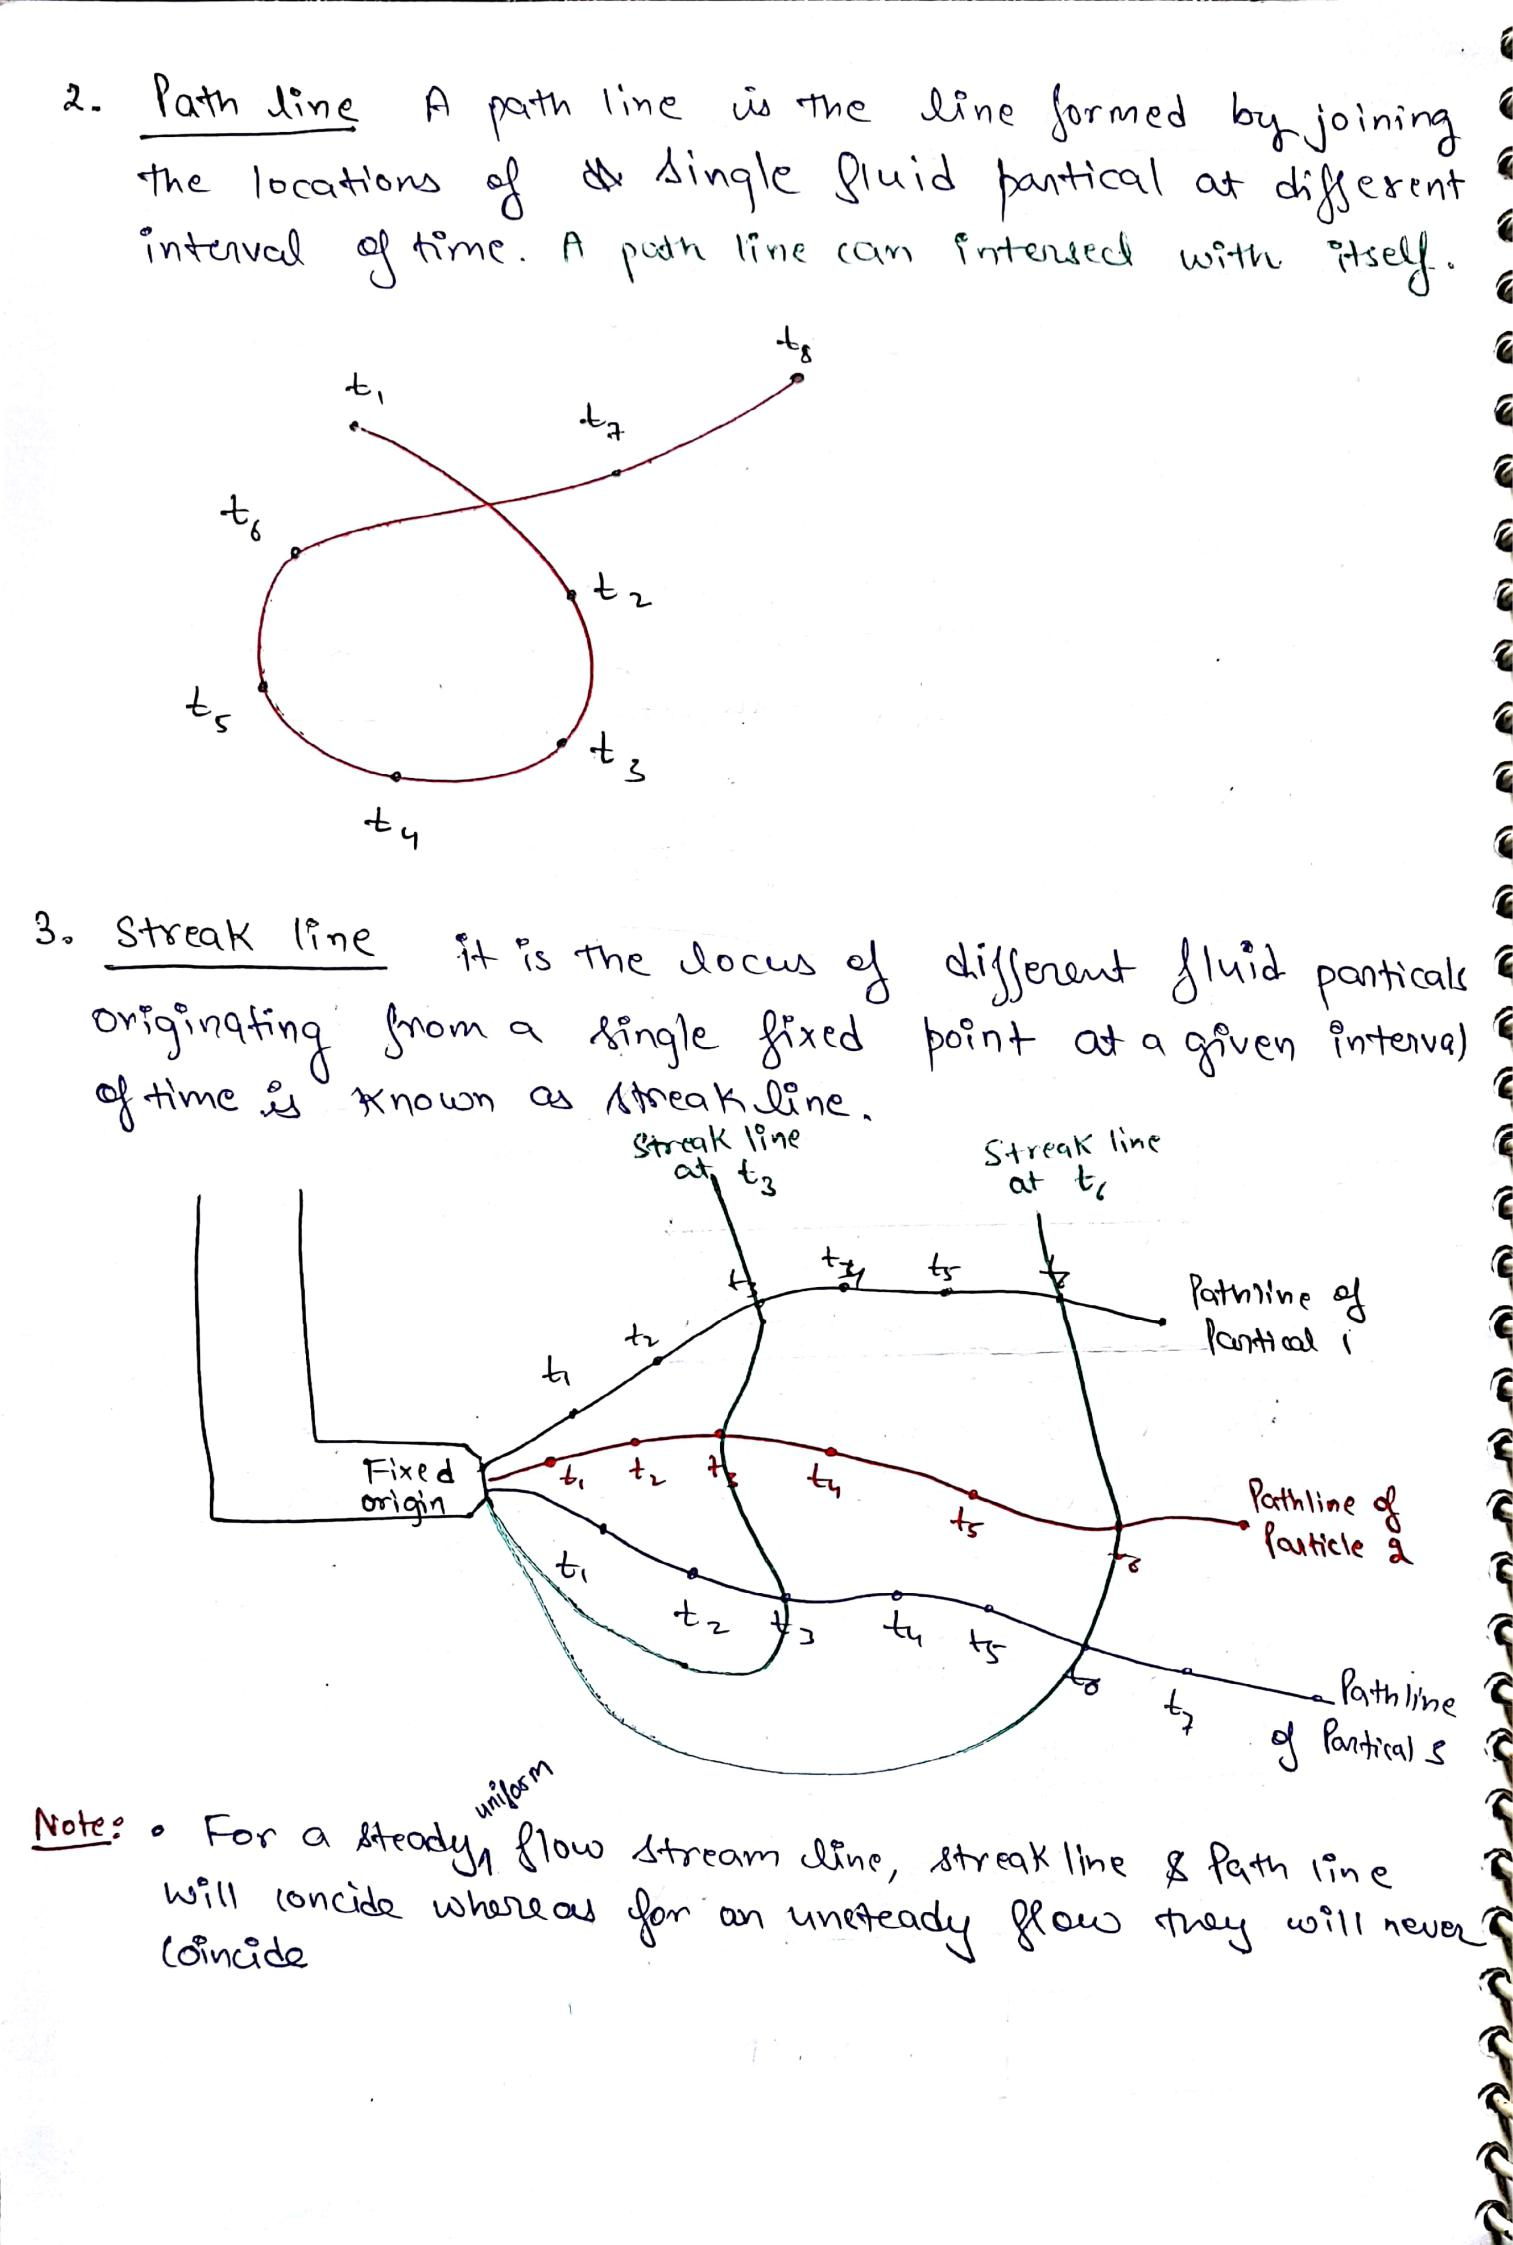 2. Path line A path line is the line formed by joining
the locations of single fluid partical at different
interval of time. A path line can intersect with itself.
t8
t1
t7
t6
t2
t5
t3
t4
3. Streak line it is the locus of different fluid particals
originating from a single fixed point at a given interval
of time is known as streak line.
Streak line
at t3
Streak line
at t6
t3 t4 t5 t6
Pathline of
Partical 1
t2
t1
Fixed
origin
t1 t2 t3 t4
t5
Pathline of
Particle 2
t6
t1
t2 t3 t4 t5
t6
t7
Pathline
of Partical 3
uniform
Note: • For a steady, flow stream line, streak line & Path line
will concide whereas for an unsteady flow they will never
coincide